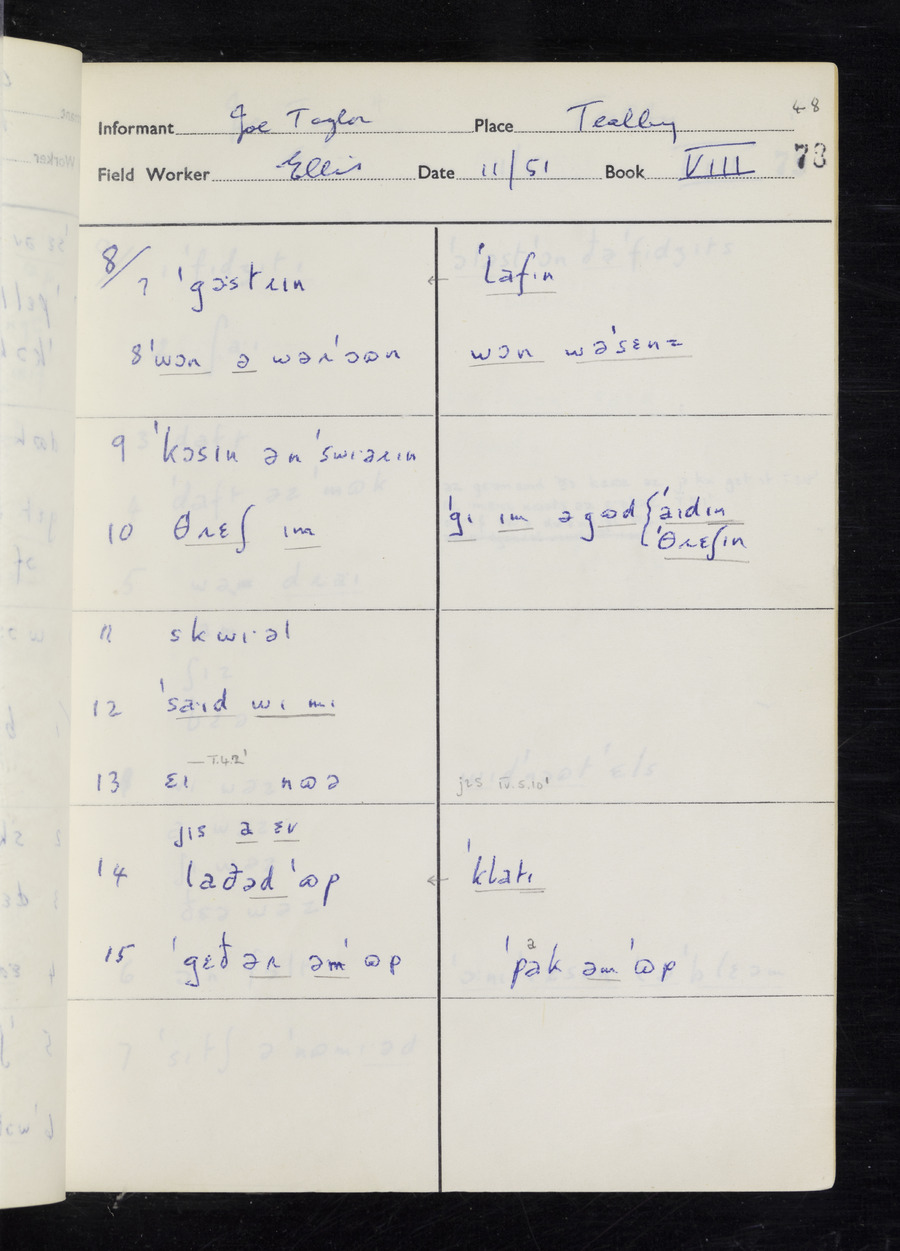 48
Informant Joe Taylor Place Tealby
Field Worker Ellis Date 11/51 Book VIII 73
8/7 ˈgɔstɹɪn ← ˈlafɪn
8 ˈwɔn ə wəɹˈɔʊn wɔn wəˈsɛnz
9 ˈkɔsɪn ən ˈswɪəɹɪn
10 θɹɛʃ ɪm ˈgɪ ɪm ə gʊd { ˈaɪdɪn
ˈθɹɛʃɪn
11 skwɪˑəl
12 ˈsaˑɪd wɪ mɪ
— V.4.2¹
13 ɛɪ nʊə jɪs IV.5.10¹
jɪs ə ɛv
14 laðəd ˈʊp ← ˈklatɪ
15 ˈgɛðəɹ əm ˈʊp ˈpak əm ˈʊp